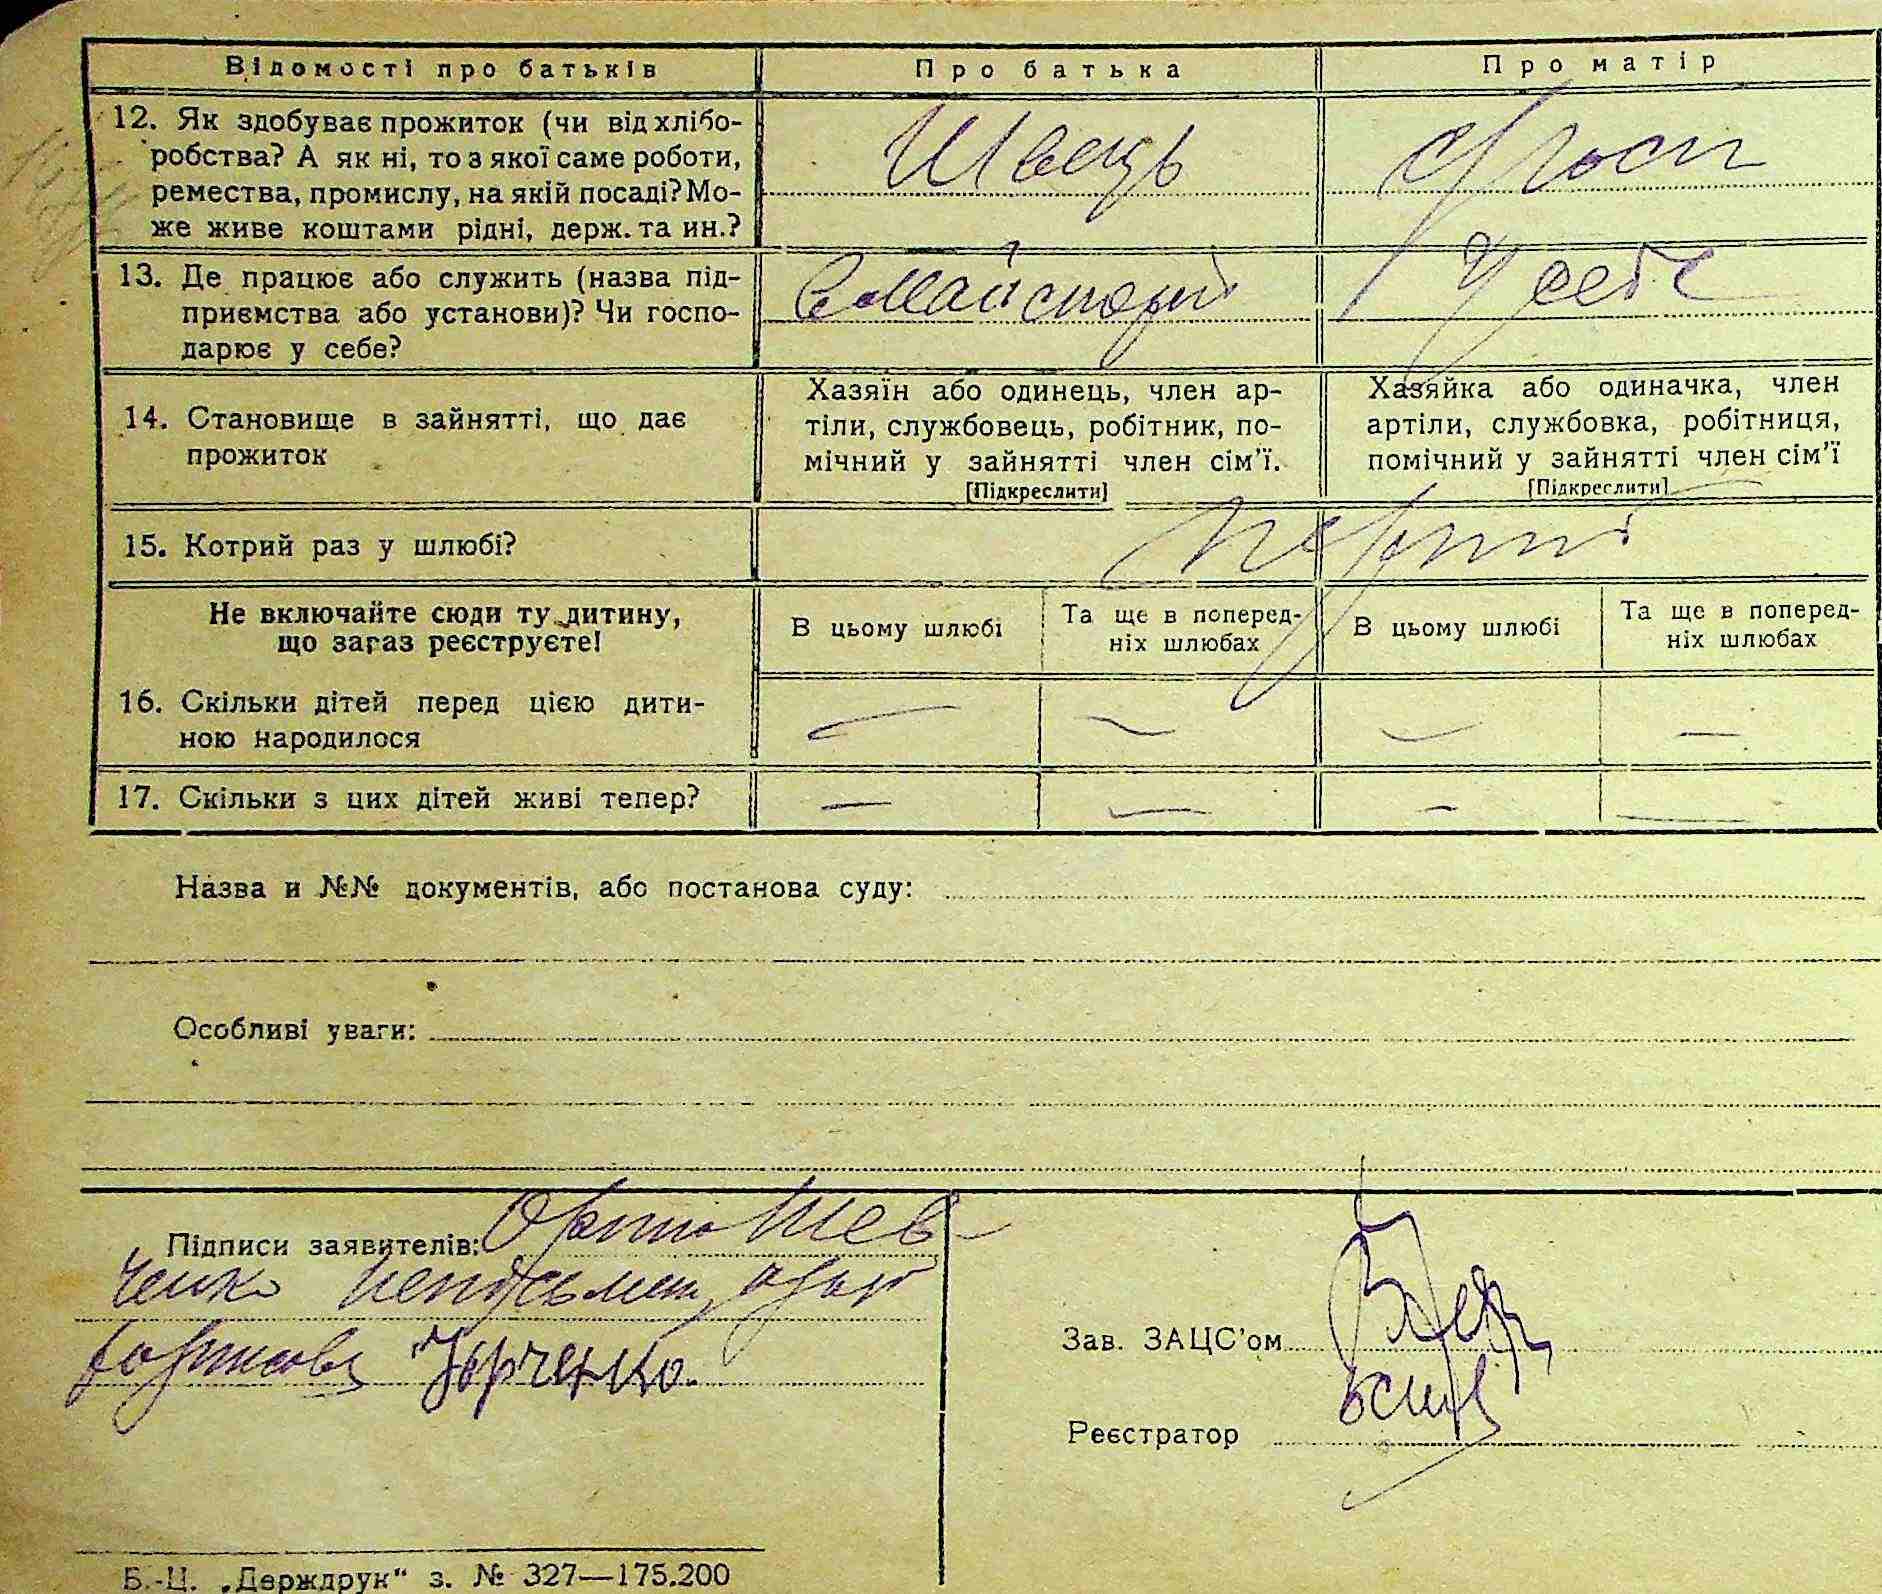 Відомості про батьків
Про батька
Про матір
12. Як здобуває прожиток (чи від хлібо-
робства? А як ні, то з якої саме роботи,
ремества, промислу, на якій посаді? Мо-
же живе коштами рідні, держ. та ин.?
Швець
13. Де працює або служить (назва під-
приємства або установи)? Чи госпо-
дарює у себе?
в майстерні
У себе
14. Становище в зайнятті, що дає
прожиток
Хазяїн або одинець, член ар-
тіли, службовець, робітник, по-
мічний у зайнятті член сім'ї.
[Підкреслити]
Хазяйка або одиначка, член
артіли, службовка, робітниця,
помічний у зайнятті член сім'ї
[Підкреслити]
15. Котрий раз у шлюбі?
Не включайте сюди ту дитину,
що зараз реєструєте!
В цьому шлюбі
Та ще в поперед-
ніх шлюбах
В цьому шлюбі
Та ще в поперед-
ніх шлюбах
16. Скільки дітей перед цією дити-
ною народилося
— — — —
17. Скільки з цих дітей живі тепер?
— — — —
Назва и №№ документів, або постанова суду:
Особливі уваги:
Підписи заявителів: Шев-
ченко
Юрченко.
Зав. ЗАЦС'ом
Реєстратор
Б.-Ц. „Держдрук“ з. № 327—175.200